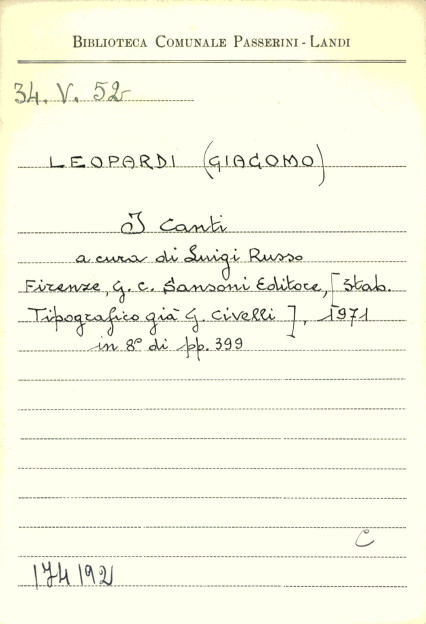 BIBLIOTECA COMUNALE PASSERINI - LANDI
34. V. 52
LEOPARDI (GIACOMO)
I Canti
a cura di Luigi Russo
Firenze, G. C. Sansoni Editore, [Stab.
Tipografico già G. Civelli], 1971
in 8° di pp. 399
C
174192